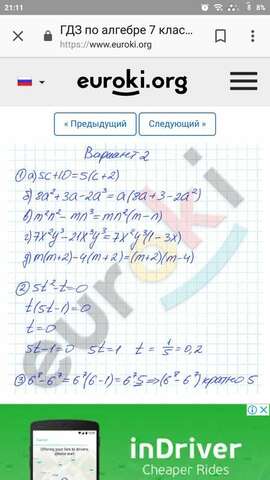 21:11
8%
ГДЗ по алгебре 7 клас...
https://www.euroki.org
euroki.org
« Предыдущий
Следующий »
Вариант 2
① а) 5c+10=5(c+2)
б) 8a²+3a-2a³=a(8a+3-2a²)
в) m²n²-mn³=mn²(m-n)
г) 7x²y³-21x³y³=7x²y³(1-3x)
д) m(m+2)-4(m+2)=(m+2)(m-4)
② 5t²-t=0
t(5t-1)=0
t=0
5t-1=0 5t=1 t=1/5=0,2
③ 6⁸-6⁷=6⁷(6-1)=6⁷5⇒(6⁸-6⁷) кратно 5
euroki
inDriver
Cheaper Rides